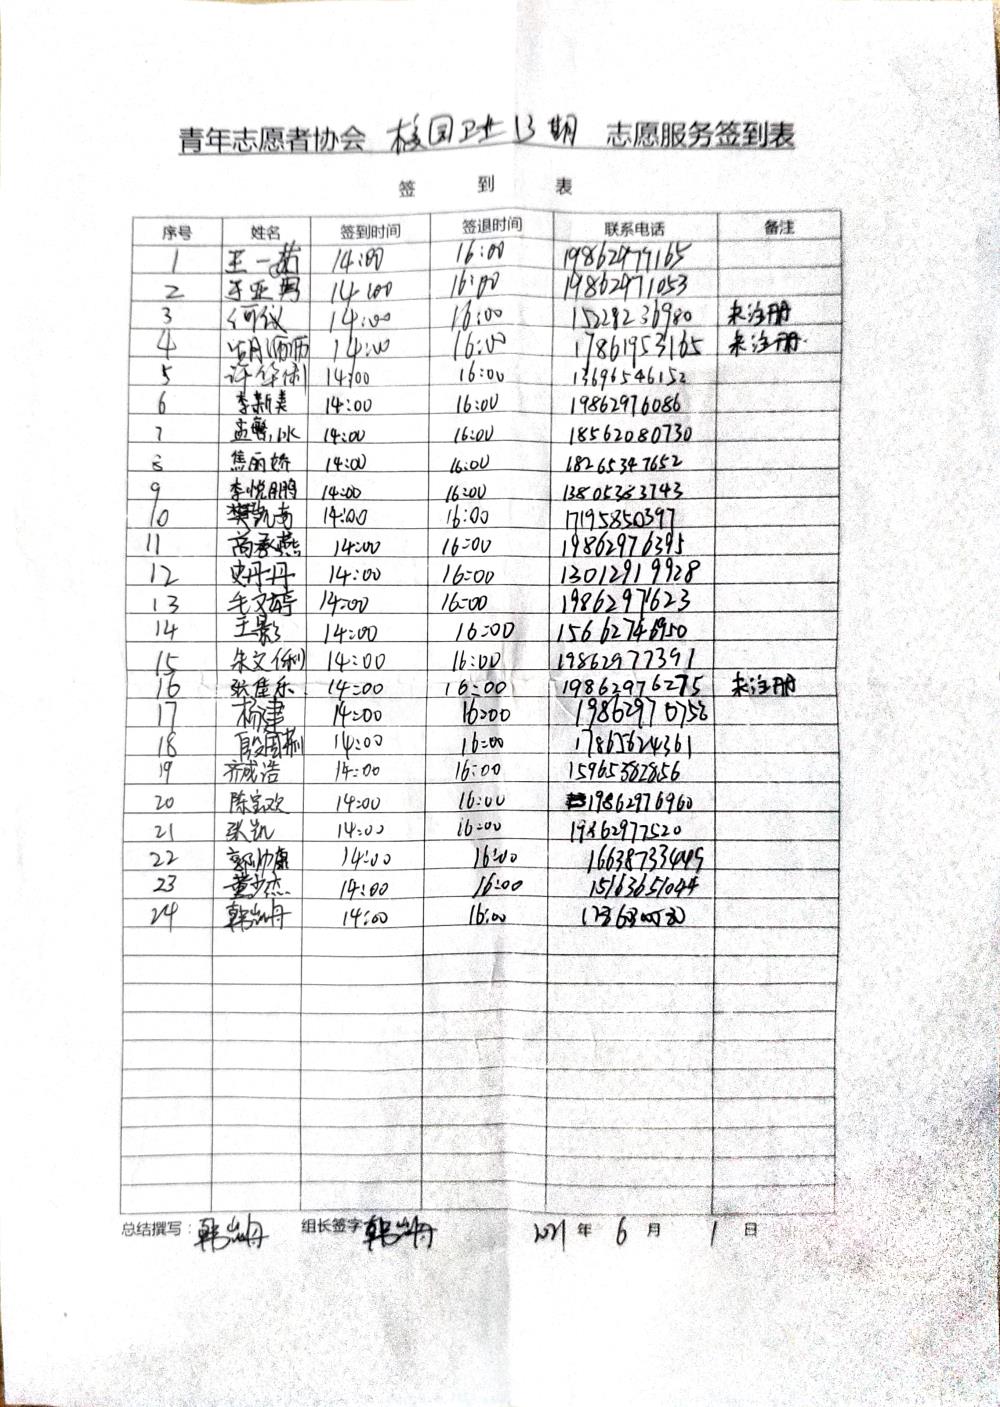 青年志愿者协会 校园卫生13期 志愿服务签到表
签 到 表
序号 姓名 签到时间 签退时间 联系电话 备注
1 王一茹 14:00 16:00 19862977165
2 于亚男 14:00 16:00 19862971053
3 何仪 14:00 16:00 15228236980 未注册
4 14:00 16:00 17861953165 未注册
5 许华俐 14:00 16:00 13696546152
6 李新美 14:00 16:00 19862976086
7 孟繁冰 14:00 16:00 18562080730
8 焦丽娇 14:00 16:00 18265347652
9 李悦鹏 14:00 16:00 13805383743
10 樊凯南 14:00 16:00 17195850397
11 高承燕 14:00 16:00 19862976395
12 史丹丹 14:00 16:00 13012919928
13 毛文婷 14:00 16:00 1986297623
14 王影 14:00 16:00 15662746950
15 朱文俐 14:00 16:00 19862977391
16 张佳乐 14:00 16:00 19862976275 未注册
17 杨津 14:00 16:00 19862970758
18 14:00 16:00 17865624361
19 齐成浩 14:00 16:00 15965382856
20 陈宝欢 14:00 16:00 19862976960
21 张凯 14:00 16:00 19862977520
22 郭帅康 14:00 16:00 16638733449
23 董少杰 14:00 16:00 15163651044
24 韩岩丹 14:00 16:00
总结撰写:韩岩丹 组长签字 韩岩丹 2021 年 6 月 1 日